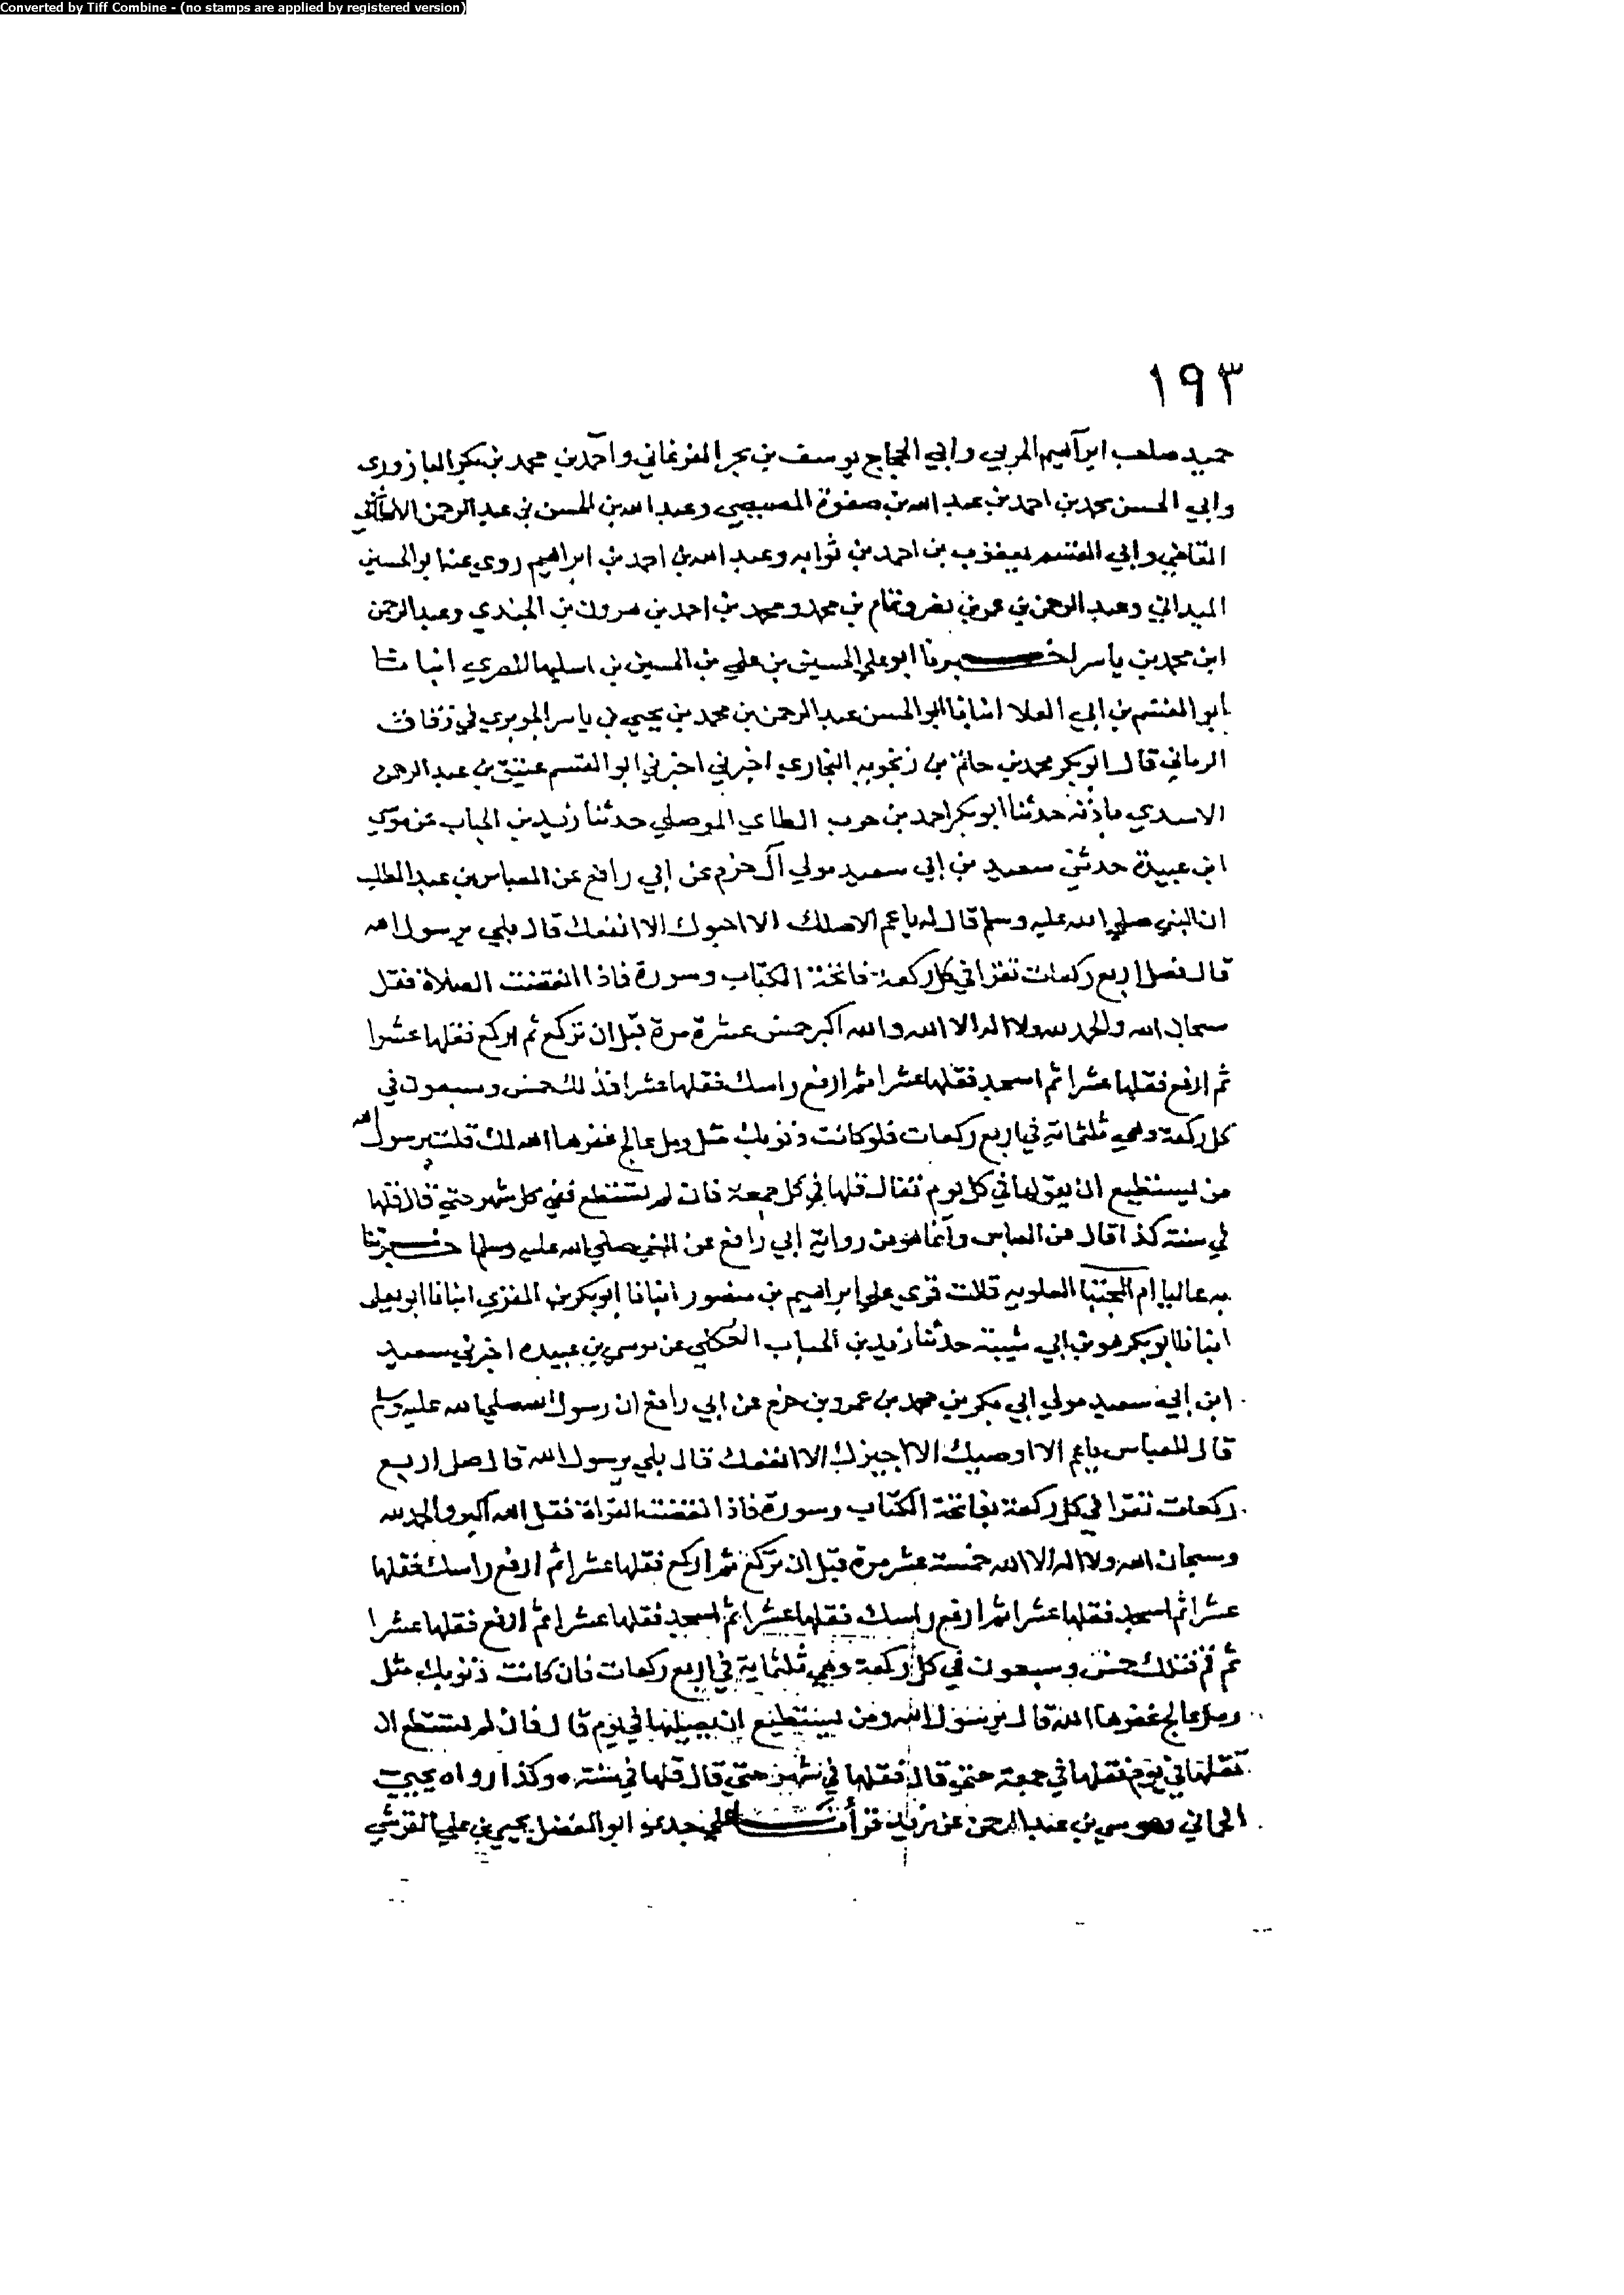 Converted by Tiff Combine - (no stamps are applied by registered version)
١٩٣
حميد صاحب ابراهيم المربي وابي الحجاج يوسف بن بحر الفرغاني واحمد بن محمد بن بكر البازوري
وابي الحسن محمد بن احمد بن عبد الله بن صفوة المصيصي وعبد الله بن الحسن بن عبد الرحمن الانطاكي
القاضي وابي القسم يعقوب بن احمد بن ثوابه وعبد الله بن احمد بن ابراهيم روي عنه ابو الحسين
الميداني وعبد الرحمن بن عمر بن نصر وتمام بن محمد ومحمد بن احمد بن هرون بن الجندي وعبد الرحمن
ابن محمد بن ياسر اخبرنا ابو علي الحسين بن علي بن الحسين بن اسليها المصري انبانا
ابو القسم بن ابي العلا انبانا ابو الحسن عبد الرحمن بن محمد بن يحيي بن ياسر الجوبري في زقاق
الرماني قال ابو بكر محمد بن حاتم بن زنجويه البخاري اخبرني اخبرني ابو القسم عتيق بن عبد الرحمن
الاسدي باذنه حدثنا ابو بكر احمد بن حرب الطاي الموصلي حدثنا زيد بن الحباب عن موسي
ابن عبيدة حدثني سعيد بن ابي سعيد مولي آل حزم عن ابي رافع عن العباس بن عبد المطلب
ان النبي صلي الله عليه وسلم قال له يا عم الا اصلك الا احبوك الا انفعك قال بلي يرسول الله
قال فصل اربع ركعات تقرا في كل ركعة فاتحة الكتاب وسورة فاذا انقضت الصلاة فقل
سبحان الله والحمد لله ولا اله الا الله والله اكبر خمس عشرة مرة قبل ان تركع ثم اركع فقلها عشرا
ثم ارفع فقلها عشرا ثم اسجد فقلها عشرا ثم ارفع راسك فقلها عشرا فذلك خمس وسبعون في
كل ركعة وهي ثلثماية في اربع ركعات فلو كانت ذنوبك مثل رمل عالج غفرها الله لك قلت يرسول الله
من يستطيع ان يقولها في كل يوم فقال قلها في كل جمعة فان لم يستطع ففي كل شهر حتي قال قلها
في سنة كذا قال عن العباس وانما هو من رواية ابي رافع عن النبي صلي الله عليه وسلم اخبرتنا
به عاليا ام المجتبا العلويه قالت قري علي ابراهيم بن منصور انبانا ابو بكر بن المقري انبانا ابو يعلي
انبانا ابو بكر هو بن ابي شيبة حدثنا زيد بن الحباب العكلي عن موسي بن عبيده اخبرني سعيد
ابن ابي سعيد مولي ابي بكر بن محمد بن عمرو بن حزم عن ابي رافع ان رسول الله صلي الله عليه وسلم
قال للعباس ياعم الا اوصيك الا اجيزك الا انفعك قال بلي يرسول الله قال صل اربع
ركعات تقرا في كل ركعة بفاتحة الكتاب وسورة فاذا انقضت القراة فقل الله اكبر والحمد لله
وسبحان الله ولا اله الا الله خمسة عشر مرة قبل ان تركع ثم اركع فقلها عشرا ثم ارفع راسك فقلها
عشرا ثم اسجد فقلها عشرا ثم ارفع راسك فقلها عشرا ثم اسجد فقلها عشرا ثم ارفع فقلها عشرا
ثم قم فتلك خمس وسبعون في كل ركعة وهي ثلثماية في اربع ركعات فان كانت ذنوبك مثل
رمل عالج غفرها الله قال يرسول الله ومن يستطيع ان يصليها في يوم قال فان لم تستطع ان
تقلها في يوم فقلها في جمعة حتي قال فقلها في شهر حتي قال قلها في سنة وكذا رواه يحيي
الحماني وموسي بن عبد الرحمن عن زيد قرأت علي جدي ابو الفضل يحيي بن علي القرشي